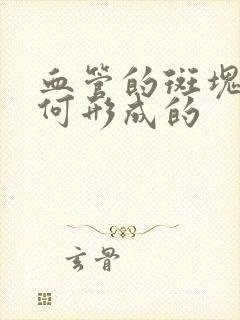 血管的斑块
何形成的
玄骨